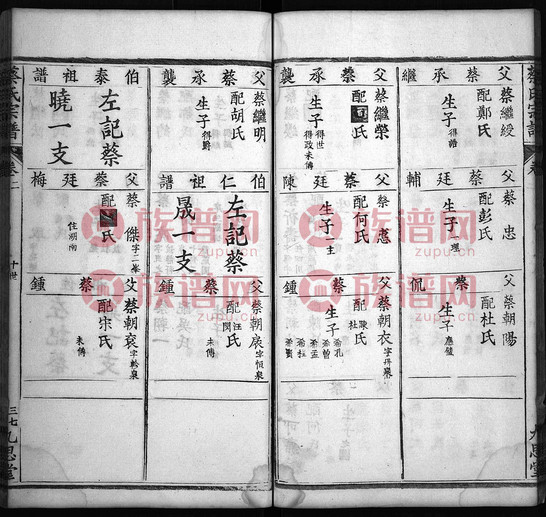 蔡氏宗譜
父蔡承繼
蔡繼綬
配鄭氏
生子得語
父蔡承襲
蔡繼榮
配 氏
生子得世得政未傳
父蔡廷輔
蔡忠
配彭氏
生子一理
父蔡廷陳
蔡憲
配何氏
生子一主
父蔡侃
蔡朝陽
配杜氏
生子應徵
父蔡鍾
蔡朝衣
配陳氏杜
生子希孔希曾希孟希
九思堂
父蔡承襲
蔡繼明
配胡氏
生子得爵
伯泰祖譜
左記蔡
曉一支
伯仁祖譜
左記蔡
晟一支
父蔡廷梅
蔡傑字二峯
配 氏
住湖南
父蔡鍾
蔡朝扆字恒泉
配汪氏閔
未傳
父蔡鍾
蔡朝袞字幹泉
配宋氏
未傳
蔡氏宗譜
卷二
十世
三七
九思堂
族谱网
zupu.cn